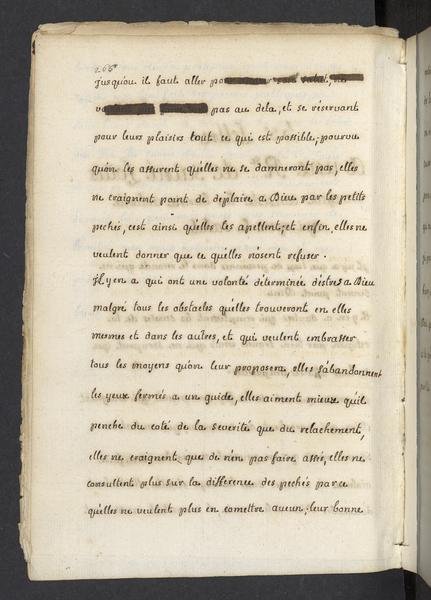 208
jusqu'ou il faut aller po
vo pas au dela, et se réservant
pour leurs plaisirs tout ce qui est possible, pourvu
qu'on les assurent qu'elles ne se damneront pas, elles
ne craignent point de deplaire a Dieu par les petits
pechés, cest ainsi qu'elles les apellent; et enfin, elles ne
veulent donner que ce qu'elles n'osent refuser.
Il y en a qui ont une volonté déterminée d'estre a Dieu
malgré tous les obstacles qu'elles trouveront en elles
mesmes et dans les autres, et qui veulent embrasser
tous les moyens qu'on leur proposera, elles s'abandonnent
les yeux fermés a un guide, elles aiment mieux qu'il
penche du coté de la severité que du relachement,
elles ne craignent que de n'en pas faire assés, elles ne
consultent plus sur la difference des pechés parce
qu'elles ne veulent plus en comettre aucun, leur bonne